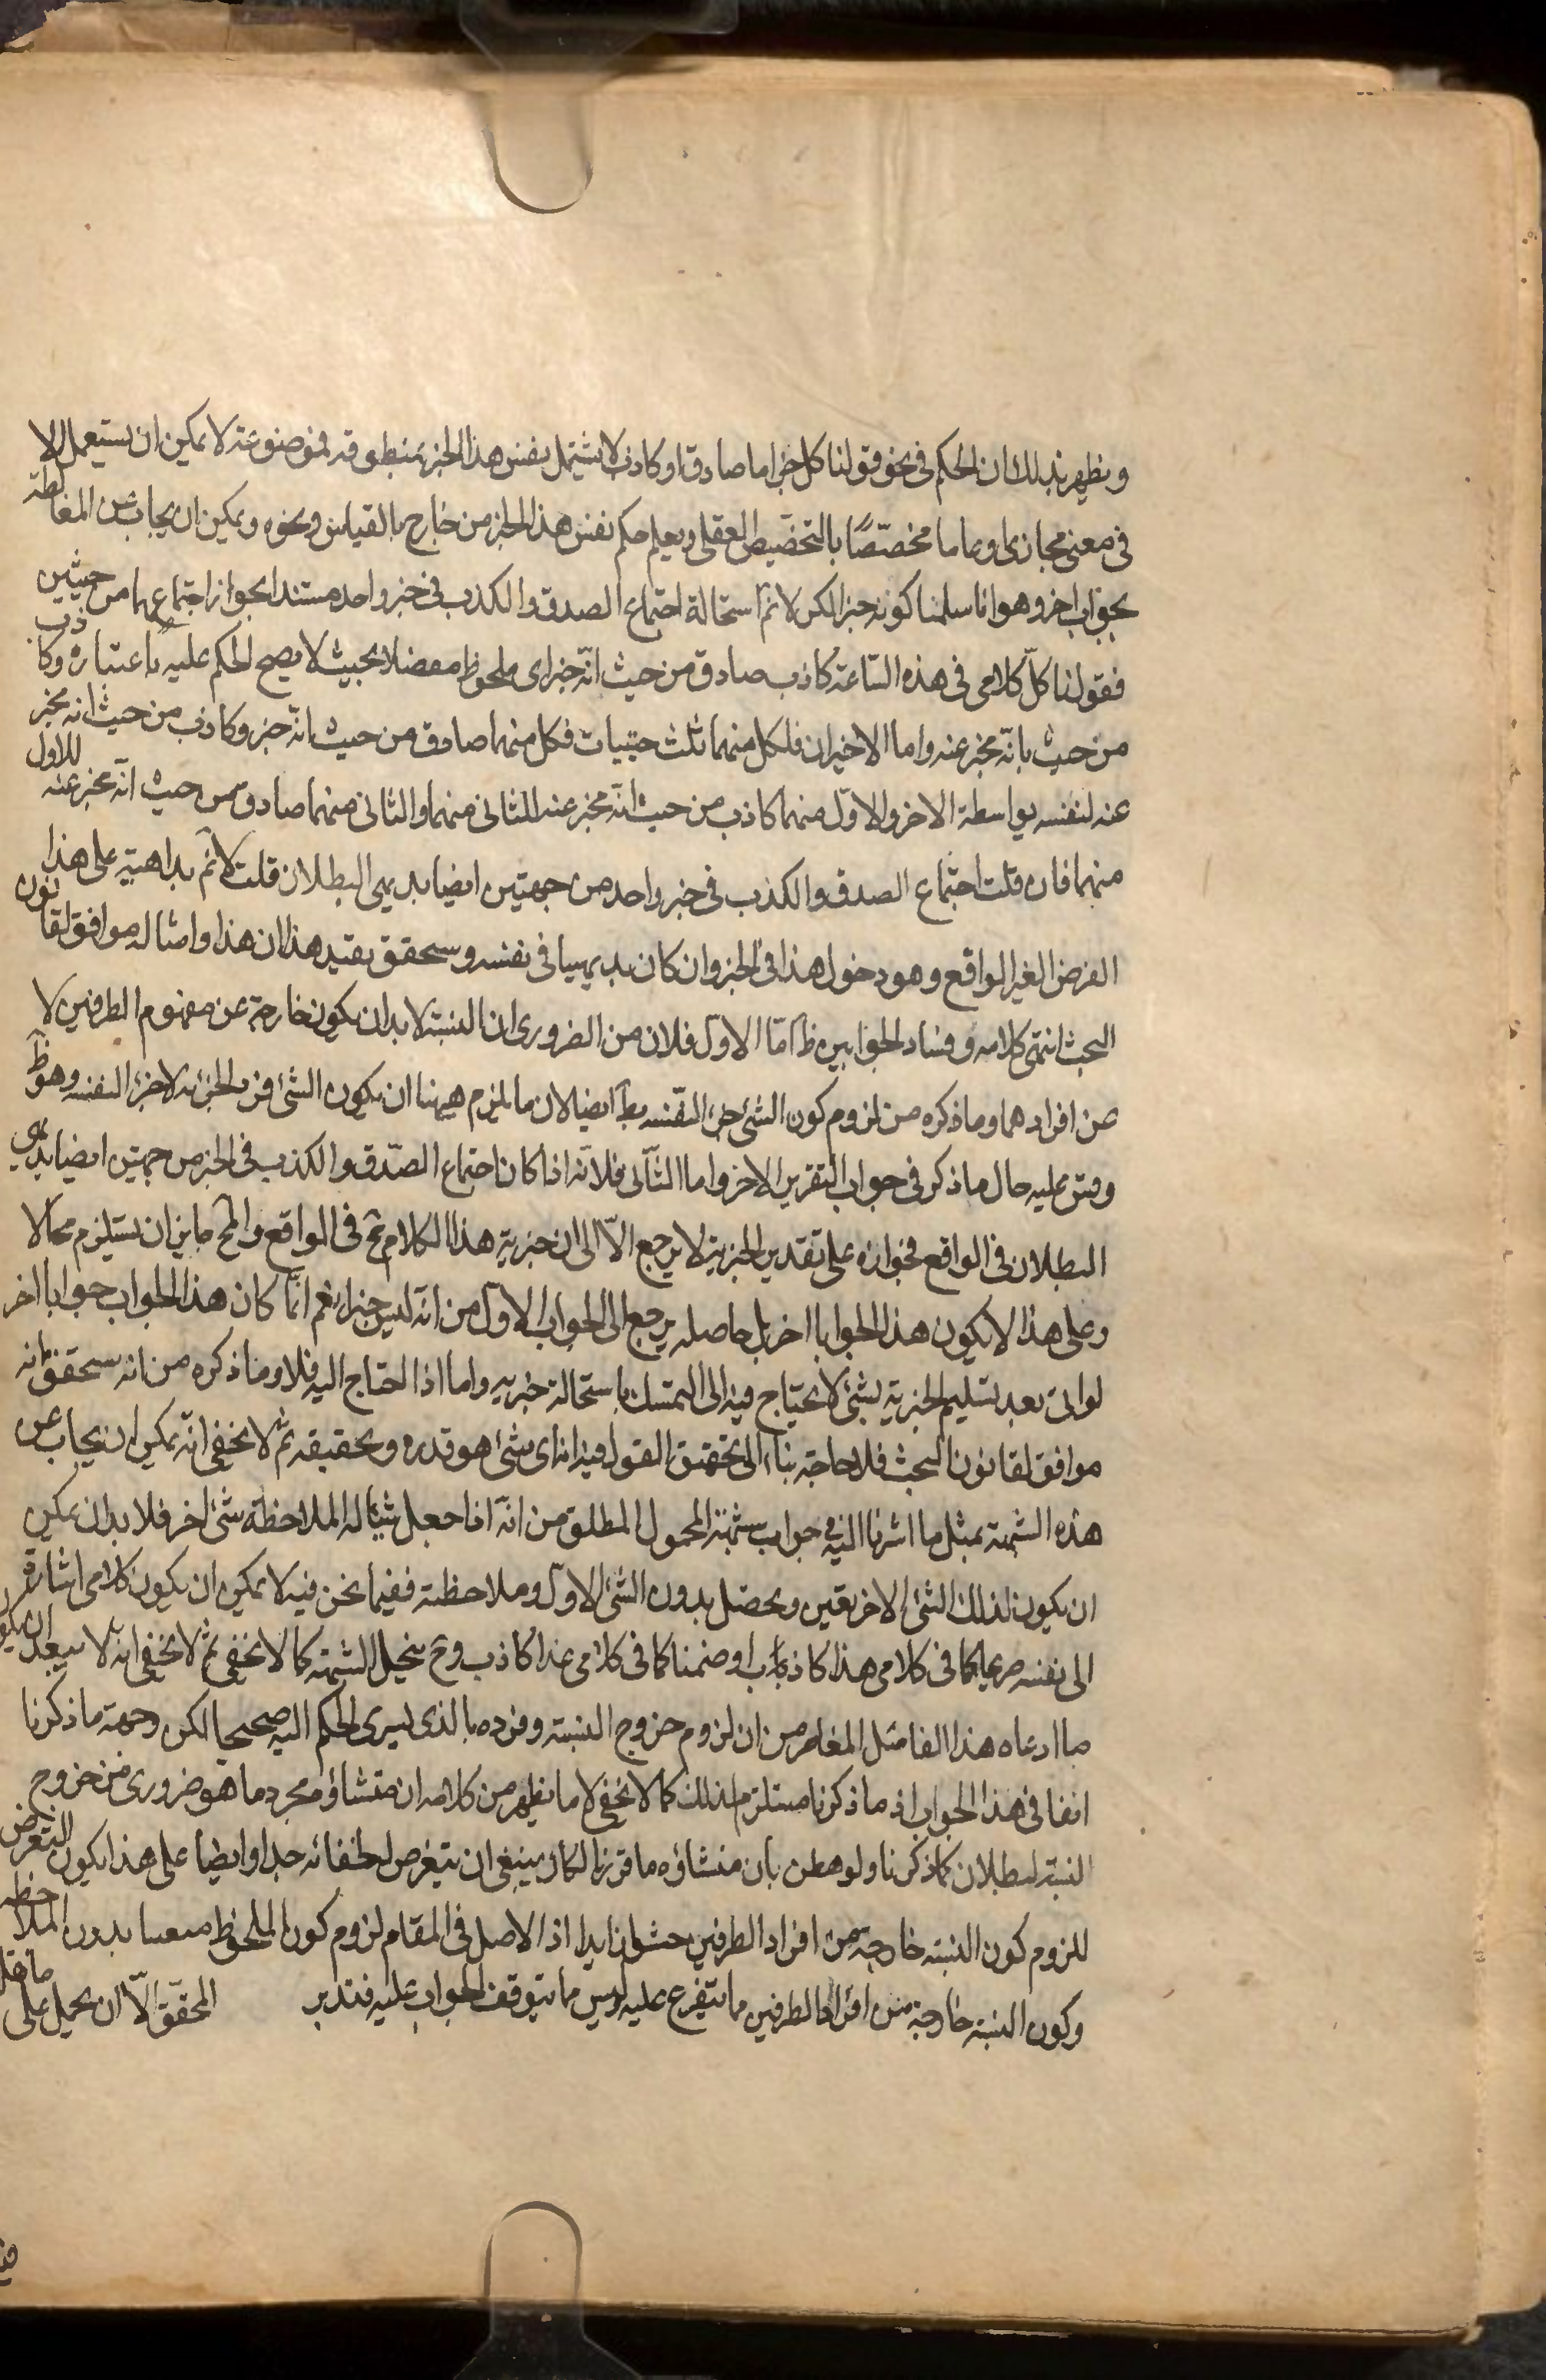 ويظهر بذلك ان الحكم في نحو قولنا كل خبر اما صادق او كاذب لا يشتمل نفس هذا الخبر بمنطوقه فموضوعته لا يمكن ان يستعمل الا
في معنى مجازى او عاما مخصّصًا بالتخصيص العقلي ويعلم حكم نفس هذا الخبز من خارج بالقياس ونحوه ويمكن ان يجاب عن المغالطة
بجواب اخر وهو انا سلمنا كونه خبرا لكن لا نم استحالة اجتماع الصدق والكذب في خبر واحد مستندا بجواز اجتماعهما من حيثين
فقولنا كلّ كلامى في هذه السّاعة كاذب صادق من حيث انّه خبر اى ملحوظ مفصلا بحيث لا يصح الحكم عليه باعتباره وكاذب
من حيث بانّه مخبر عنه واما الاخيران فلكل منهما ثلث حيثيات فكل منهما صادق من حيث انّه خبر وكاذب من حيث انه مخبر
عنه لنفسه بواسطة الاخر والاوّل منهما كاذب من حيث انّه مخبر عنه للثانى منهما والثانى منهما صادق من حيث انّه مخبر عنه للاول
منهما فان قلت اجتماع الصدق والكذب في خبر واحد من جهتين ايضا بديهى البطلان قلت لا نم بداهته على هذا
الفرض الغير الواقع وهو دخول هذا في الخبر وان كان بديهيا في نفسه وسحقق بقيد هذا ان هذا وامثاله موافق لقانون
البحث انتهى كلامه وفساد الجوابين ظ امّا الاول فلان من الضرورى ان النسبة لا بد ان يكون خارجة عن مفهوم الطرفين لا
من افرادهما وما ذكره من لزوم كون الشئ جزء لنفسه بط ايضا لان ما يلزم ههنا ان يكون الشئ فرد لجزئه لا جزء لنفسه وهو ظ
وقس عليه حال ما ذكر في جواب التقرير الاخر واما الثّانى فلانّه اذا كان اجتماع الصّدق والكذب في الخبر من جهتين ايضا بديهى
البطلان في الواقع فجوازه على تقدير الخبرية لا يرجع الّا الى ان خبرية هذا الكلام مح في الواقع والمح جاز ان يستلزم محالا
وعلى هذا لا يكون هذا الجوابا اخر بل حاصله يرجع الى الجواب الاول من انّه ليس خبرا نعم انّما كان هذا الجواب جوابا اخر
لو اتى بعد تسليم الخبرية بشئ لا يحتاج فيه الى التمسك باستحالة خبريه واما اذا احتاج اليه فلا وما ذكره من انه سحقق انه
موافق لقانون البحث فلا حاجة بنا الى تحقيق القول فيه اذ اى شئ هو قدره وتحقيقه ثم لا يخفى انّه يمكن ان يجاب عن
هذه الشبهة بمثل ما اشرنا اليه في جواب شبهة المجهول المطلق من انّه اذا جعل شئ الة لملاحظة شئ اخر فلا بد ان يمكن
ان يكون لذلك الشئ الاخر تعين وتحصل بدون الشئ الاول وملاحظته ففيما نحن فيه لا يمكن ان يكون كلامى اشارة
الى نفسه صريحا كما في كلامى هذا كاذب او ضمنا كما في كلامى غدا كاذب وح ينحل الشبهة كما لا يخفى ثم لا يخفى انه لا يبعد ان يكون
ما ادعاه هذا الفاضل المعاصر من ان لزوم خروج النسبة وفرده بالذى يسرى الحكم اليه صحيحا لكن وجهه ما ذكرنا
انفا في هذا الجواب اذ ما ذكرنا مستلزم لذلك كما لا يخفى لا ما يظهر من كلامه ان منشاؤه مجرد ما هو ضرورى من خروج
النسبة لبطلان كما ذكرنا ولو بان منشاؤه ما قررنا لكان ينبغى ان يتعرض لخفائه جدا وايضا على هذا يكون التعرض
للزوم كون النسبة خارجة من افراد الطرفين حشوا زايدا اذ الاصل في المقام لزوم كون الملحوظ متعينا بدون الملاحظة
وكون النسبة خارجة من افراد الطرفين ما يتفرع عليه وليس ما يتوقف الجواب عليه فتدبر المحقق الّا ان يحمل على